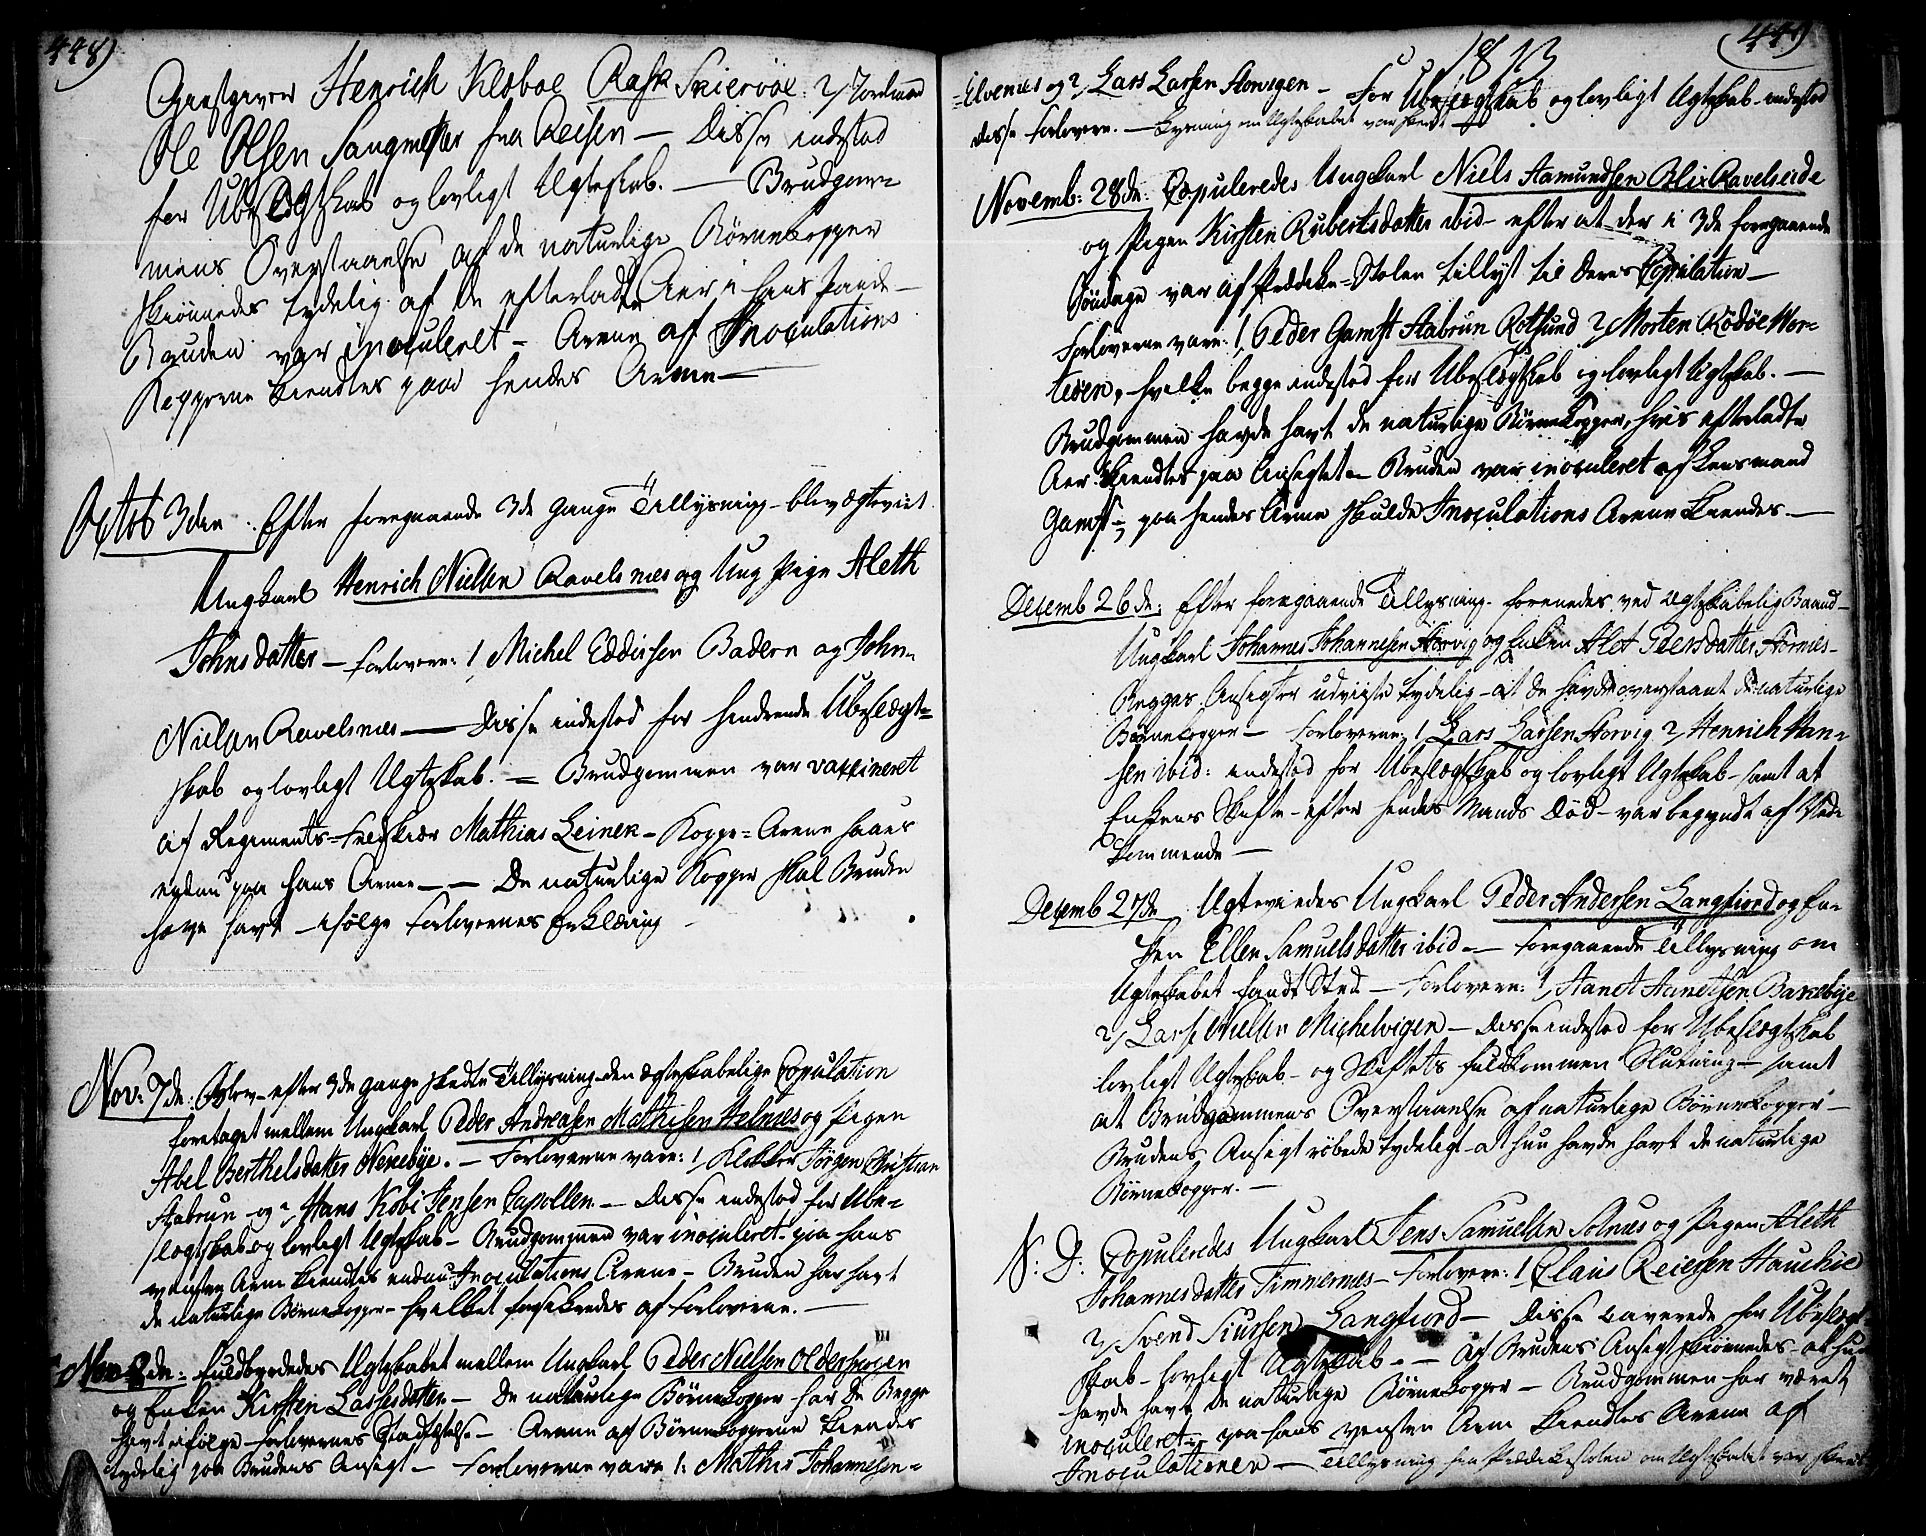 448)
Giæstgiver Henrich Klæboe Rask Skiervöe. 2, Nordmand
Ole Olsen Sangmester fra Reisen — Disse indestod
for Ubeslægtskab og lovligt Ægteskab. — Brudgom-
mens Overstaaelse af de naturlige Börnekopper
skiönnedes tydelig af de efterladte Aer i hans Pande —
Bruden var inoculeret — Arene af Inoculations
Kopperne kiendtes paa hendes Arme —
Octob 3den. Efter foregaaende 3de Gange Tillysning — blev ægteviet
Ungkarl Henrich Nielsen Ravelsnæs og Ung Pige Aleth
Johnsdatter — Forlovere: 1, Michel Eddissen Badern og John
Nielsen Ravelsnæs — Disse indestod for hendrende Ubeslægt=
skab og lovligt Ægteskab. — Brudgommen var vaccineret
af Regiments-Feldskiær Mathias Leinen — Koppe-Arene haves
endnu paa hans Arme — De naturlige Kopper skal Bruden
have havt ifölge Forlovernes Erklæring —
Nov: 7de: Blev efter 3de Gange skedte Tillysning den ægteskabelige Copulation
foretaget mellem Ungkarl Peder Andreasen Mathisen Helnæs og Pigen
Abel Berthelsdatter Nenebye. — Forloverne vare: 1, Klokker Jörgen Christian
Aabrun og 2, Hans Kobi Jensen Capollen — Disse indestod for Ube-
slægtskab og lovligt Ægteskab — Brudgommen var inoculeret — paa hans
venstre Arm kiendtes endnu Inoculations Arene — Bruden har havt
de naturlige Börnekopper — hvilket forsikredes af Forloverne. —
Nov 8de: fuldbyrdedes Ægteskabet mellem Ungkarl Peder Nielsen Olderskogen
og Enken Kirsten Larsesdatter — De naturlige Börnekopper har De Begge
havt ifölge Forlovernes Stadfæstelse — Arene af Börnekopperne kiendes
tydelig paa Brudens Ansigt — Forloverne vare 1: Mathis Johannesen=
1813
(449)
=Elvenæs og 2, Lars Larsen Storvigen — For Ubeslægtskab og lovligt Ægteskab indestod
disse Forlovere. — Lysning om Ægteskabet var skeedt —
Novemb: 28de: Copuleredes Ungkarl Niels Aamundsen Blix Ravelseide
og Pigen Kirsten Rubertsdatter ibid — efter at der i 3de foregaaende
Söndage var af Prædike-Stolen tillyst til deres Copulation —
Forloverne vare: 1, Peder Gamst Aabrun Rotsund 2, Morten Rödöe Mor=
tesen, hvilke begge indestod for Ubeslægtskab og lovligt Ægteskab. —
Brudgommen havde havt de naturlige Börnekopper, hvis efterladte
Aer kiendtes paa Ansigtet — Bruden var inoculeret af Lensmand
Gamst — paa hendes Arme skulde Inoculations Arene kiendes. —
Decemb 26de: Efter foregaaende Tillysning forenedes ved ægteskabelig Baand —
Ungkarl Johannes Johannesen Storvig og Enken Alet Peersdatter Stornes —
Begges Ansigter udviiste tydelig — at de havde overstaaet de naturlige
Börnekopper — Forloverne: 1, Lars Larsen Storvig 2, Henrich Han=
sen ibid: indestod for Ubeslægtskab og lovligt Ægteskab — samt at
Enkens Skifte — efter hendes Mands Död — var begyndt af Ved-
kommende —
Decemb 27de Ægteviedes Ungkarl Peder Andersen Langfiord og En-
ken Ellen Samuelsdatter ibid — Foregaaende Tillysning om
Ægteskabet fandt Sted — Forlovere: 1, Aanet Aanetsen Bankebye
2, Lars Nielsen Michelvigen — Disse indestod for Ubeslægtskab
lovligt Ægteskab — og Skiftets fuldkommen Slutning — samt
at Brudgommens Overstaaelse af naturlige Börnekopper —
Brudens Ansigt röbede tydeligt at hun havde havt de naturlige
Börnekopper. —
N: D: Copuleredes Ungkarl Jens Samuelsen Solnæs og Pigen Aleth
Johannesdatter Timmernæs — Forlovere: 1, Claus Reiersen Hauchöe
2, Svend Siursen Langfiord — Disse caverede for Ubeslægt
skab — lovligt Ægteskab. — Af Brudens Ansigt skiönnedes — at hun
havde havt de naturlige Börnekopper — Brudgommen har været
inoculeret — paa hans venstre Arm kiendtes Arene af
Inoculationen — Tillysning fra Prædikestolen om Ægteskabet var skeedt